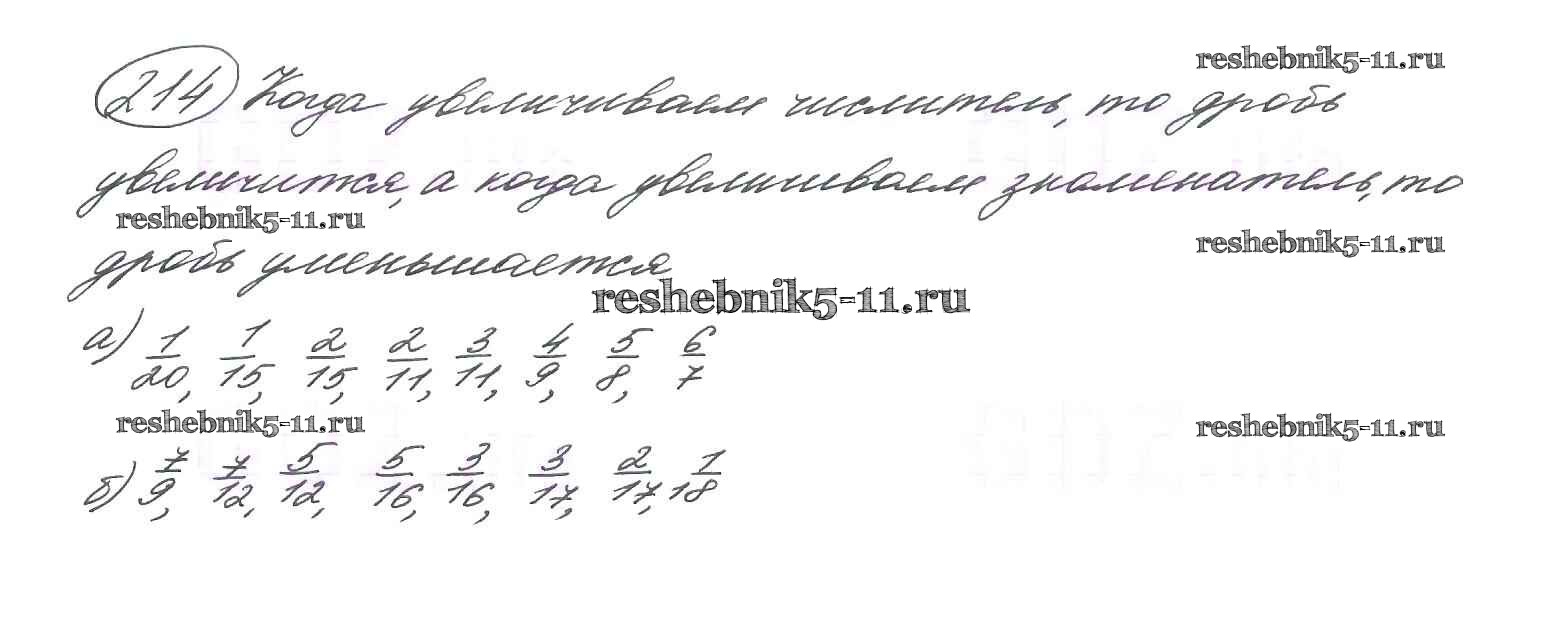 reshebnik5-11.ru
214 Когда увеличиваем числитель, то дробь
увеличится, а когда увеличиваем знаменатель, то
reshebnik5-11.ru
reshebnik5-11.ru
дробь уменьшается
reshebnik5-11.ru
а) 1/20, 1/15, 2/15, 2/11, 3/11, 4/9, 5/8, 6/7
reshebnik5-11.ru
reshebnik5-11.ru
б) 7/9, 7/12, 5/12, 5/16, 3/16, 3/17, 2/17, 1/18